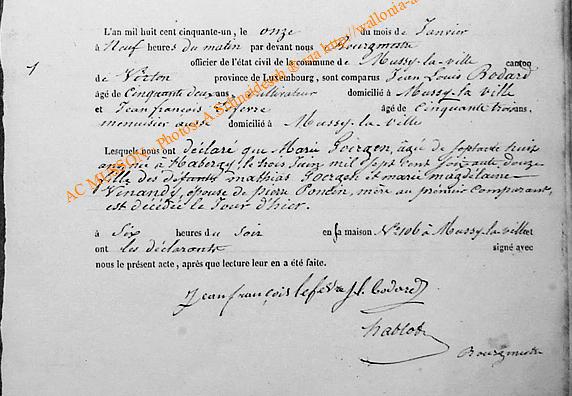 L'an mil huit cent cinquante-un, le onze du mois de Janvier
à Neuf heures du matin par devant nous Bourgmestre
officier de l'état civil de la commune de Mussy-la-ville canton
1
de Virton province de Luxembourg, sont comparus Jean Louis Bodard
âgé de Cinquante deux ans, cultivateur domicilié à Mussy-la ville
et Jean françois Lefevre âgé de Cinquante trois ans,
menuisier aussi domicilié à Mussy-la-ville
Lesquels nous ont déclaré que Marie Goergen, agée de septante huit
ans née à Habergy, le trois Juin mil sept cent soixante douze
fille des défunts mathias Goergen et marie magdelaine
Venandy, épouse de pierre Poncin, mère au premier comparant,
est décédée le Jour d'hier.
à Six heures du Soir en sa maison N° 106 à Mussy-la-ville et
ont les déclarants signé avec
nous le présent acte, après que lecture leur en a été faite.
Jean françois lefevre J. l. bodard
hablot
Bourgmestre
AC MUSSON - Photos: A. Schneidesch @ http://wallonia-a